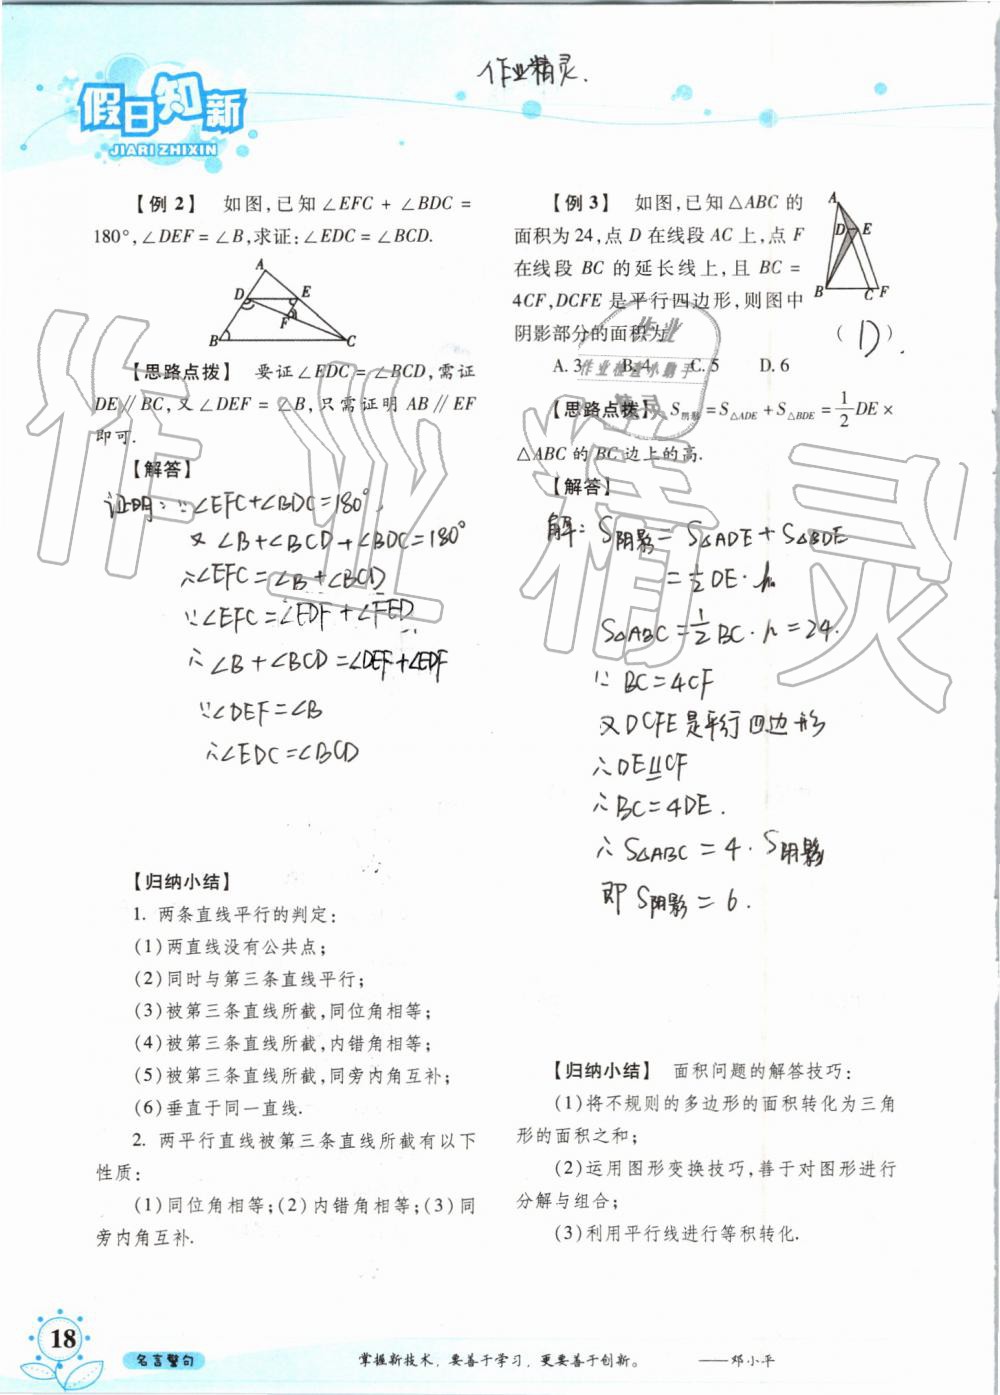 作业精灵.
假日知新
JIARI ZHIXIN
【例2】 如图,已知∠EFC + ∠BDC =
180°,∠DEF = ∠B,求证:∠EDC = ∠BCD.
A
D
E
F
B
C
【思路点拨】 要证∠EDC = ∠BCD,需证
DE∥BC,又∠DEF = ∠B,只需证明 AB∥EF
即可.
【解答】
证明:∵∠EFC+∠BDC=180°,
又∠B+∠BCD+∠BDC=180°
∴∠EFC=∠B+∠BCD
∵∠EFC=∠EDF+∠FED
∴∠B+∠BCD=∠DEF+∠EDF
∵∠DEF=∠B
∴∠EDC=∠BCD
【归纳小结】
1. 两条直线平行的判定:
(1)两直线没有公共点;
(2)同时与第三条直线平行;
(3)被第三条直线所截,同位角相等;
(4)被第三条直线所截,内错角相等;
(5)被第三条直线所截,同旁内角互补;
(6)垂直于同一直线.
2. 两平行直线被第三条直线所截有以下
性质:
(1)同位角相等;(2)内错角相等;(3)同
旁内角互补.
【例3】 如图,已知△ABC 的
面积为24,点 D 在线段 AC 上,点 F
在线段 BC 的延长线上,且 BC =
4CF,DCFE 是平行四边形,则图中
阴影部分的面积为 ( D ).
A
D
E
B
C
F
A. 3 B. 4 C. 5 D. 6
【思路点拨】 S阴影 = S△ADE + S△BDE = 1/2 DE ×
△ABC 的 BC 边上的高.
【解答】
解:S阴影 = S△ADE + S△BDE
= 1/2 DE · h
S△ABC = 1/2 BC · h = 24.
∵ BC = 4CF
又DCFE是平行四边形
∴DE∥CF
∴BC=4DE.
∴S△ABC = 4 · S阴影
即 S阴影 = 6.
【归纳小结】 面积问题的解答技巧:
(1)将不规则的多边形的面积转化为三角
形的面积之和;
(2)运用图形变换技巧,善于对图形进行
分解与组合;
(3)利用平行线进行等积转化.
作业
作业检查小助手
精灵
作业精灵
18
名言警句
掌握新技术, 要善于学习, 更要善于创新。 ——邓小平